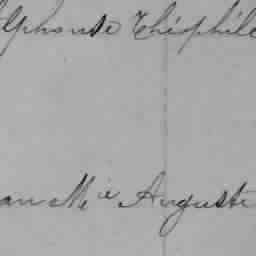 Alphonse Théophile
an Mie Auguste